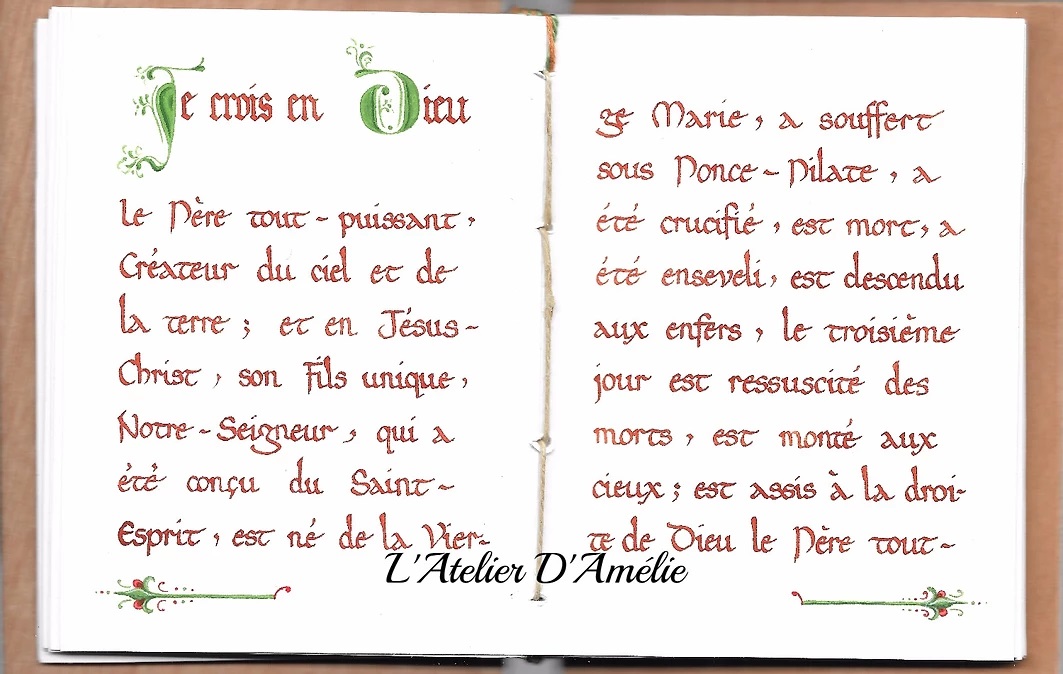 Je crois en Dieu
le Père tout-puissant,
Créateur du ciel et de
la terre ; et en Jésus-
Christ, son Fils unique,
Notre-Seigneur, qui a
été conçu du Saint-
Esprit, est né de la Vier-
ge Marie, a souffert
sous Ponce-Pilate, a
été crucifié, est mort, a
été enseveli, est descendu
aux enfers, le troisième
jour est ressuscité des
morts, est monté aux
cieux ; est assis à la droi-
te de Dieu le Père tout-
L'Atelier D'Amélie